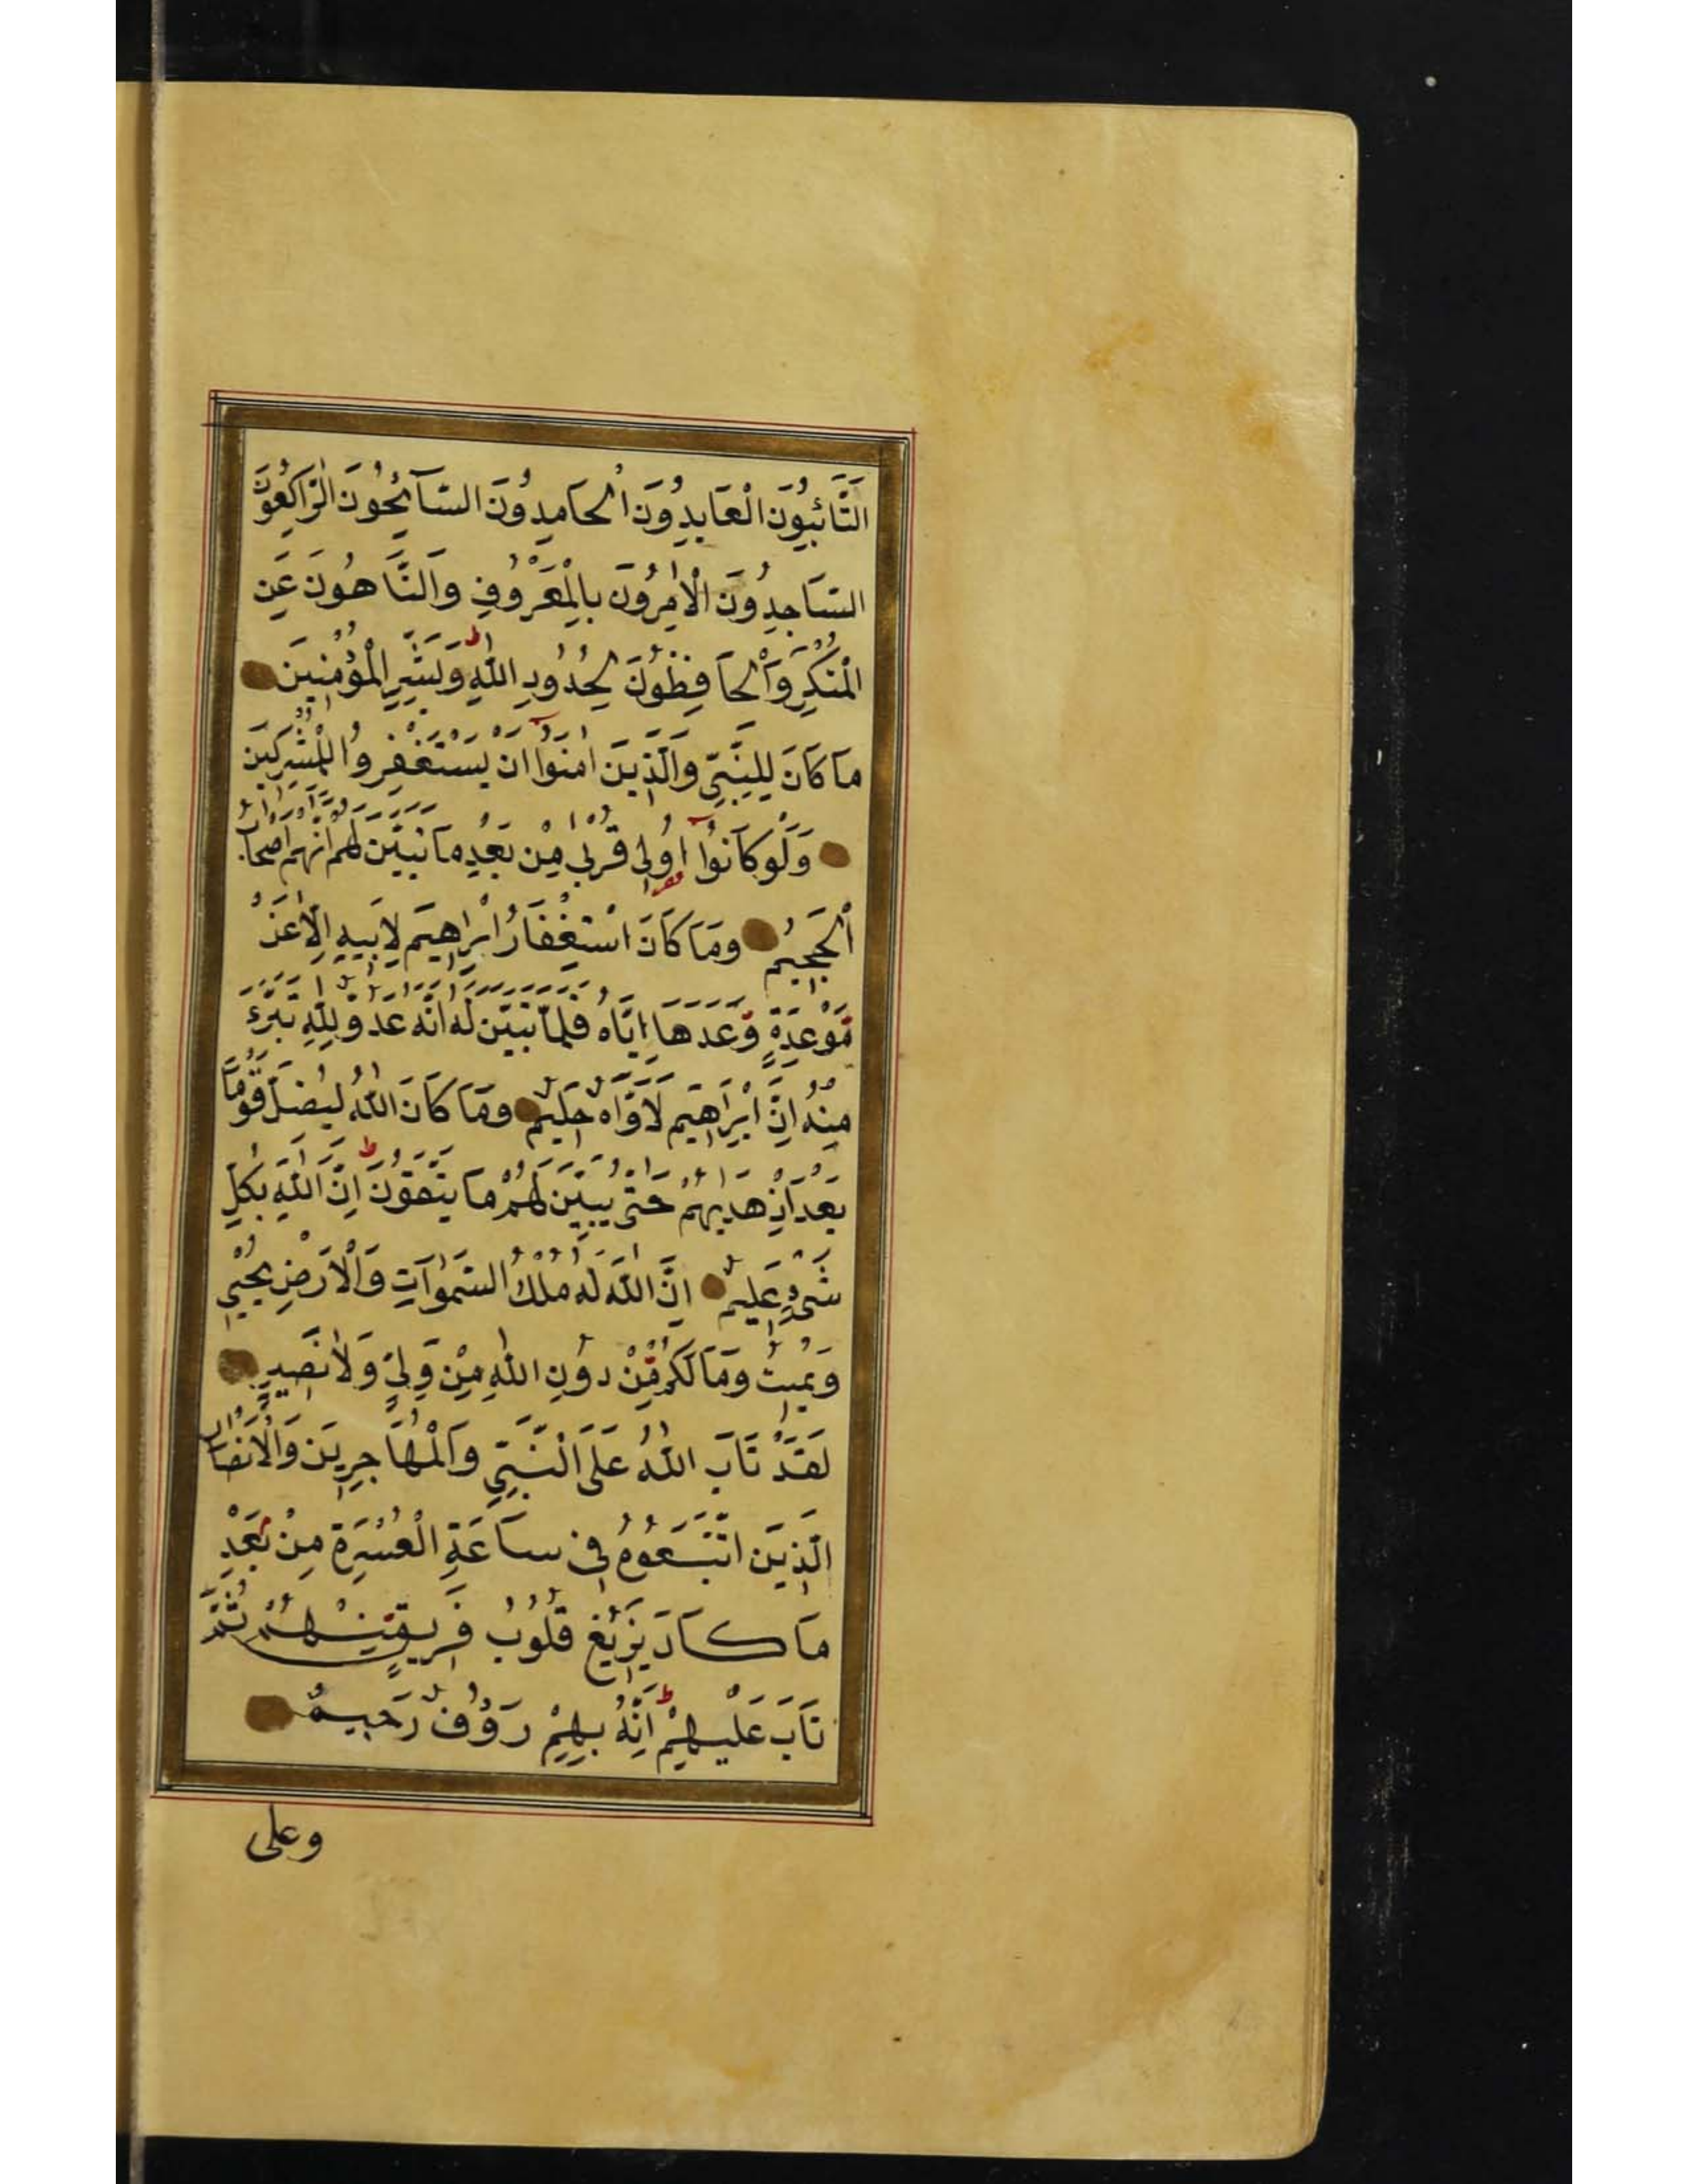 اَلتَّائِبُونَ الْعَابِدُونَ الْحَامِدُونَ السَّآئِحُونَ الرَّاكِعُونَ
السَّاجِدُونَ الْاٰمِرُونَ بِالْمَعْرُوفِ وَالنَّاهُونَ عَنِ
الْمُنْكَرِ وَالْحَافِظُونَ لِحُدُودِ اللّٰهِ ط وَبَشِّرِ الْمُؤْمِنِينَ
مَا كَانَ لِلنَّبِيِّ وَالَّذِينَ اٰمَنُوٓا اَنْ يَسْتَغْفِرُوا لِلْمُشْرِكِينَ
وَلَوْ كَانُوٓا اُولِى قُرْبٰى مِنْ بَعْدِ مَا تَبَيَّنَ لَهُمْ اَنَّهُمْ اَصْحَابُ
الْجَحِيمِ وَمَا كَانَ اسْتِغْفَارُ اِبْرٰاهِيمَ لِاَبِيهِ اِلَّا عَنْ
مَّوْعِدَةٍ وَّعَدَهَا اِيَّاهُ فَلَمَّا تَبَيَّنَ لَهُ اَنَّهُ عَدُوٌّ لِلّٰهِ تَبَرَّءَ
مِنْهُ اِنَّ اِبْرٰاهِيمَ لَاَوَّاهٌ حَلِيمٌ وَمَا كَانَ اللّٰهُ لِيُضِلَّ قَوْمًا
بَعْدَ اِذْ هَدٰيهُمْ حَتّٰى يُبَيِّنَ لَهُمْ مَا يَتَّقُونَ ط اِنَّ اللّٰهَ بِكُلِّ
شَىْءٍ عَلِيمٌ اِنَّ اللّٰهَ لَهُ مُلْكُ السَّمٰوَاتِ وَالْاَرْضِ يُحْيِى
وَيُمِيتُ وَمَا لَكُمْ مِّنْ دُونِ اللّٰهِ مِنْ وَلِيٍّ وَلَا نَصِيرٍ
لَقَدْ تَابَ اللّٰهُ عَلَى النَّبِيِّ وَالْمُهَاجِرِينَ وَالْاَنْصَارِ
الَّذِينَ اتَّبَعُوهُ فِى سَاعَةِ الْعُسْرَةِ مِنْ بَعْدِ
مَا كَادَ يَزِيغُ قُلُوبُ فَرِيقٍ مِنْهُمْ ثُمَّ
تَابَ عَلَيْهِمْ ط اِنَّهُ بِهِمْ رَؤُفٌ رَحِيمٌ
وعلى